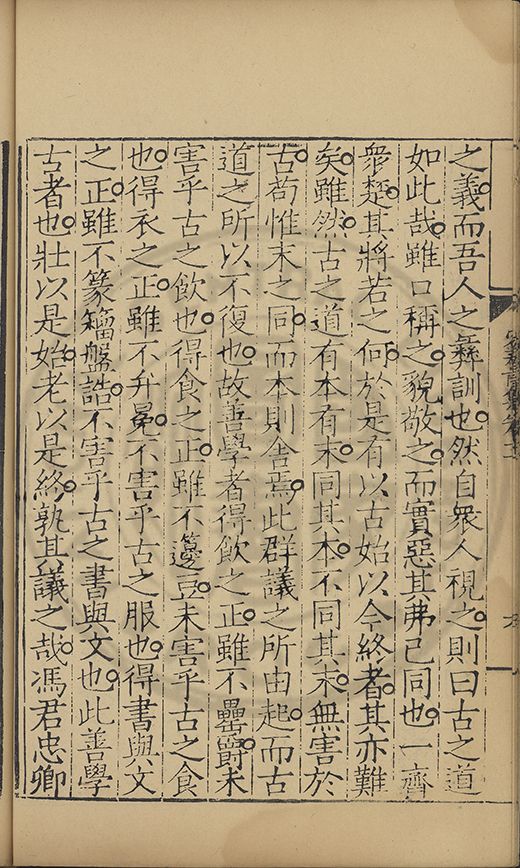 之義而吾人之彞訓也然自衆人視之則曰古之道
如此哉雖口稱之貌敬之而實惡其弗己同也一齊
衆楚其將若之何於是有以古始以今終者其亦難
矣雖然古之道有本有末同其本不同其末無害於
古苟惟末之同而本則舍焉此群議之所由起而古
道之所以不復也故善學者得飲之正雖不罍爵未
害乎古之飲也得食之正雖不籩豆未害乎古之食
也得衣之正雖不弁冕不害乎古之服也得書與文
之正雖不篆籀盤誥不害乎古之書與文也此善學
古者也壯以是始老以是終孰其議之哉馮君忠卿